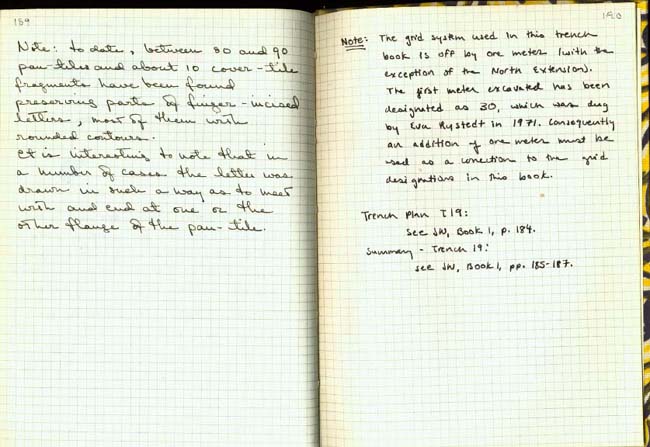 189
Note: to date, between 80 and 90
pan-tiles and about 10 cover-tile
fragments have been found
preserving parts of finger-incised
letters, most of them with
rounded contours.
It is interesting to note that in
a number of cases the letter was
drawn in such a way as to meet
with and end at one or the
other flange of the pan-tile.
190
Note: The grid system used in this trench
book is off by one meter (with the
exception of the North Extension).
The first meter excavated has been
designated as 30, which was dug
by Eva Rystedt in 1971. Consequently
an addition of one meter must be
used as a correction to the grid
designations in this book.
Trench Plan T19:
See JW, Book 1, p. 184.
Summary - Trench 19:
see JW, Book 1, pp. 185-187.